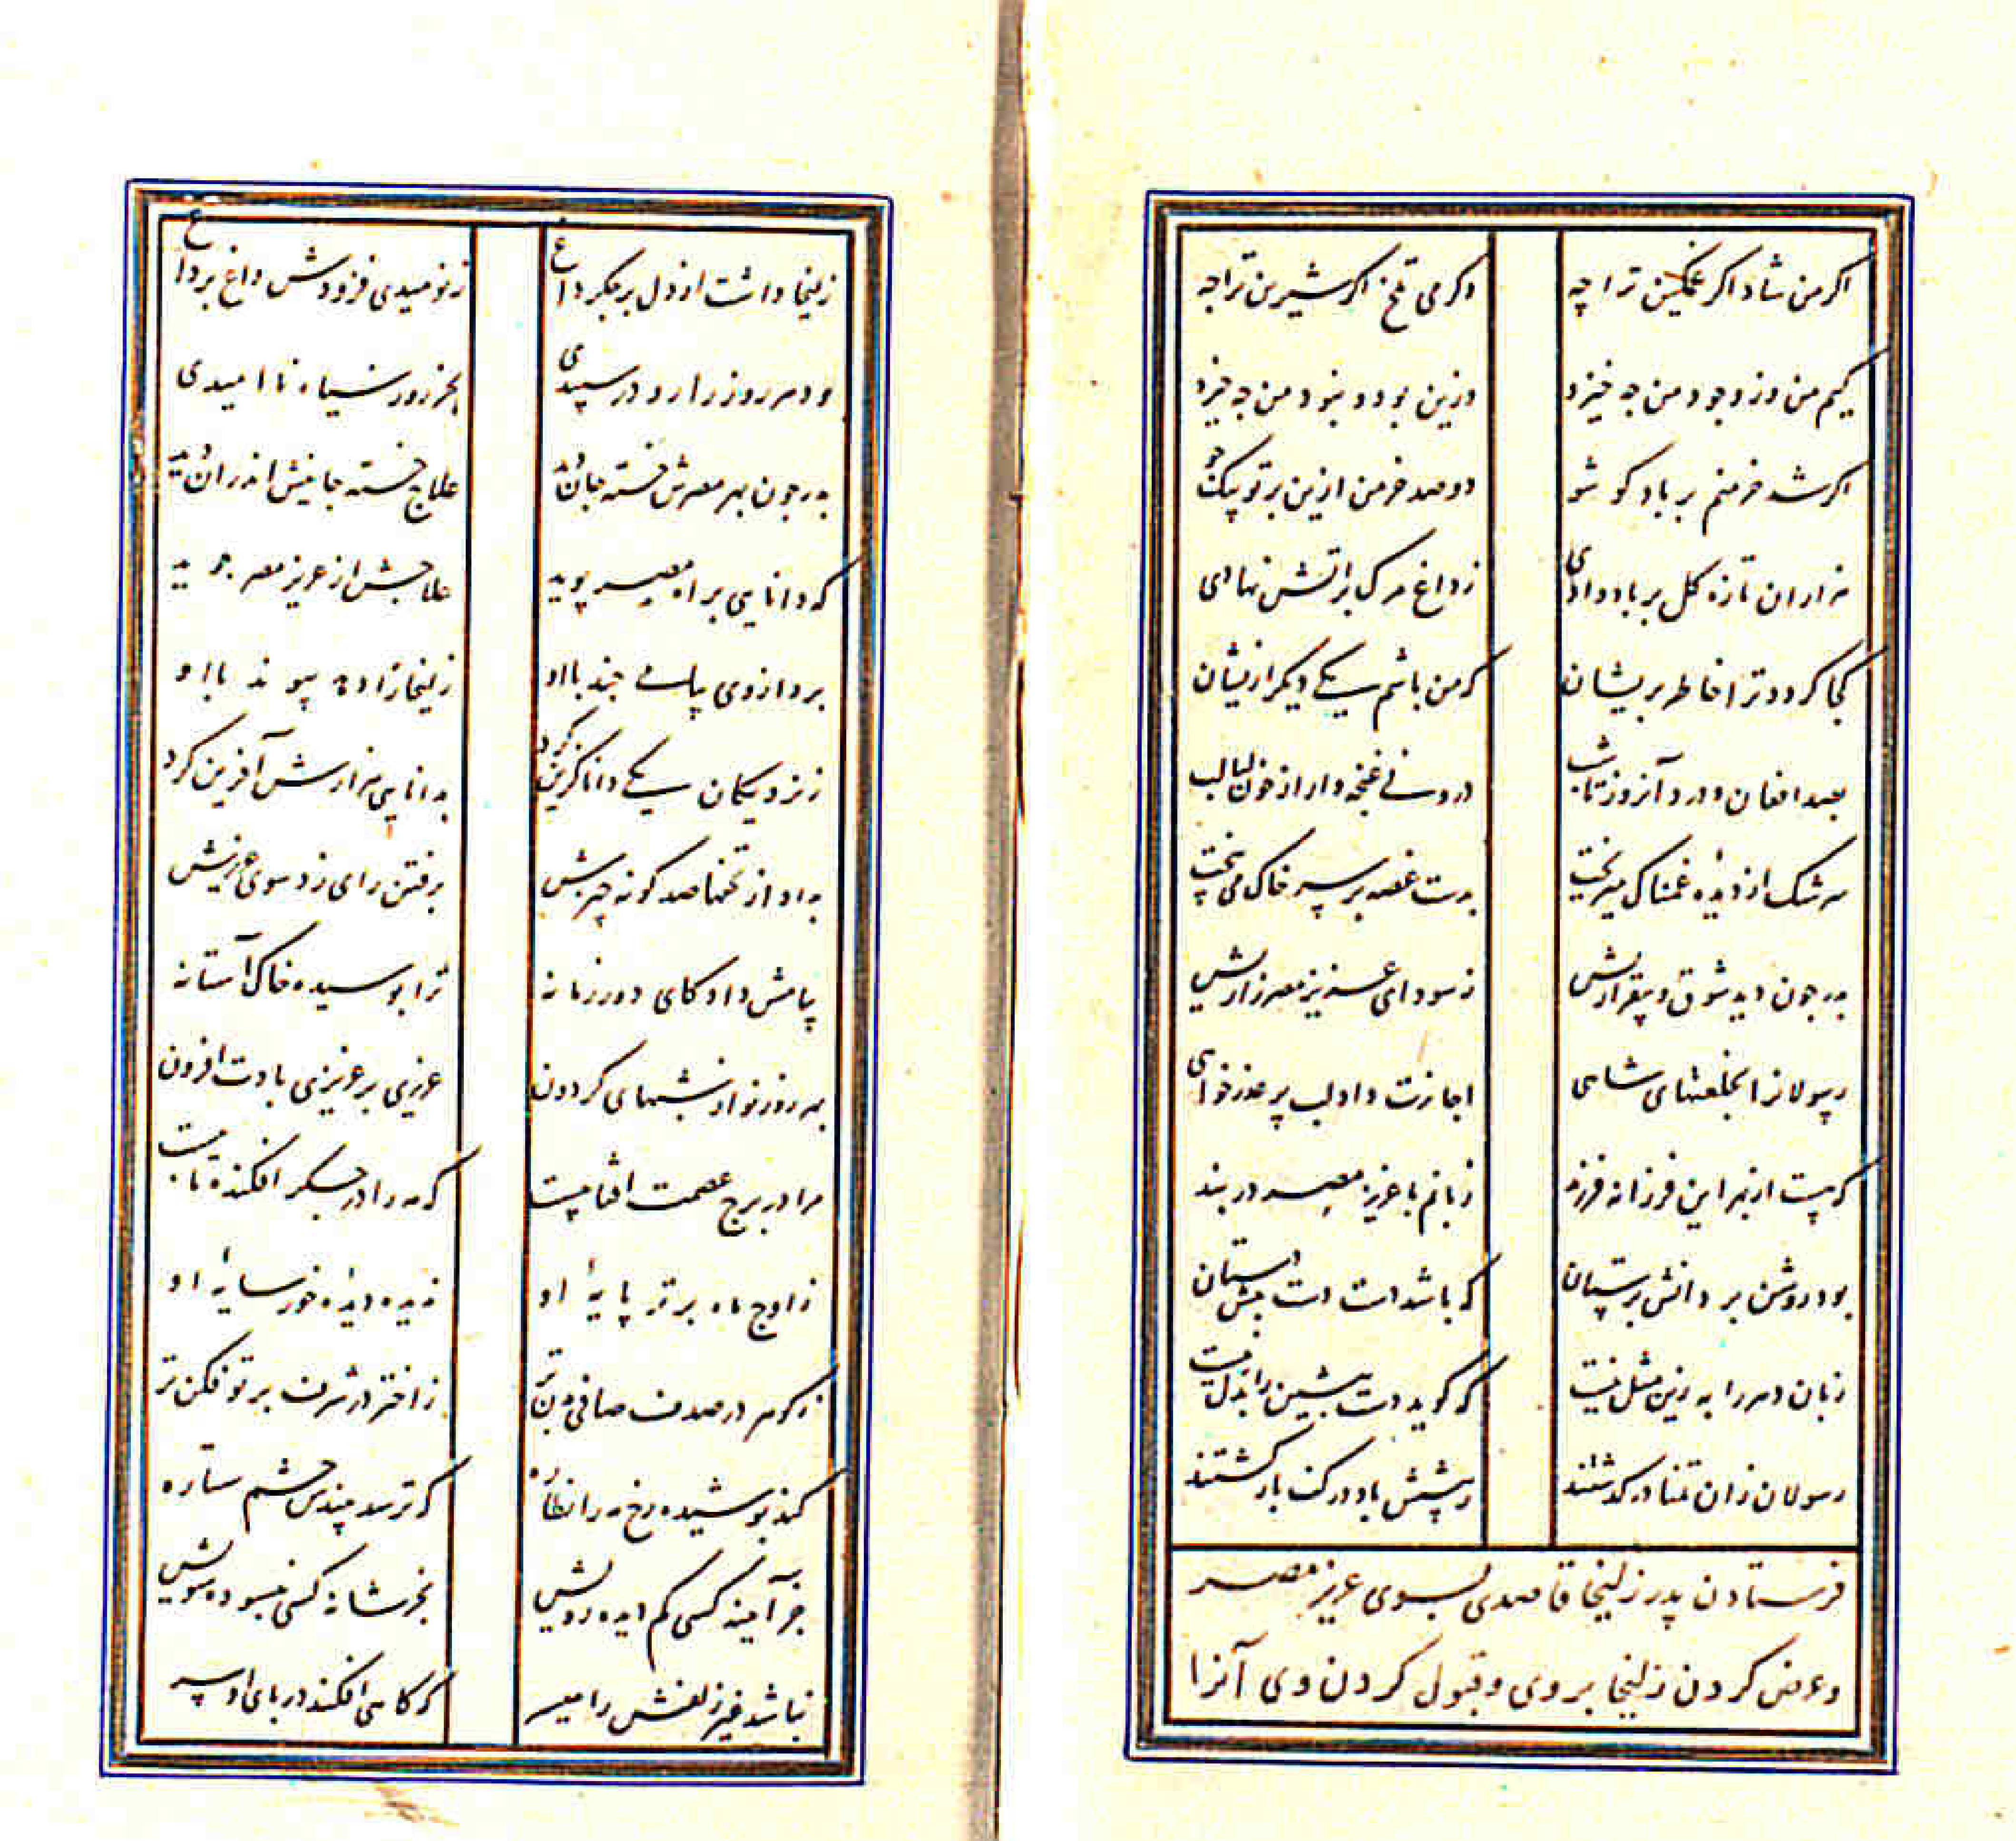 اکر من شاد اکر غمکین ترا چه
وکر می تلخ اکر شیرین ترا چه
کیم من وز وجود من چه خیزد
وزین بود و نبود من چه خیزد
اکر شد خرمنم بر باد کو شو
دو صد خرمن ازین بر تو بیک جو
هزاران تازه کل بر باد دادی
ز داغ مرک بر آتش نهادی
کجا کردد ترا خاطر پریشان
که من باشم یکی دیکر از ایشان
بصد افغان و درد آنروز تا شب
درونی غنچه وار از خون لبالب
سرشک از دیده غمناک میریخت
بدست غصه بر سر خاک می بیخت
پدر چون دید شوق و بیقراریش
ز سودای عزیز مصر زاریش
رسولانرا بخلعتهای شاهی
اجازت داد لب پر عذرخواهی
که هست از بهر این فرزانه فرزند
زبانم با عزیز مصر در بند
بود روشن بر دانش پرستان
که باشد دست دست پیش دستان
زبان دهر را به زین مثل نیست
که کوید دست پیشین را بدل نیست
رسولان زان تمنا در کذشتند
ز پیشش باد در کف باز کشتند
فرستادن پدر زلیخا قاصدی بسوی عزیز مصر
وعرض کردن زلیخا بر وی وقبول کردن وی آنرا
زلیخا داشت از دل بر جکر داغ
ز نومیدی فزودش داغ بر داغ
بود هر روز را رو در سپیدی
بجز روز سیاه ناامیدی
پدر چون بهر مصرش خسته جان دید
علاج خسته جانیش اندران دید
که دانایی براه مصر پوید
علاجش از عزیز مصر جوید
برد از وی پیامی چند با او
زلیخا را دهد پیوند با او
ز نزدیکان یکی دانا کزین کرد
بدانایی هزارش آفرین کرد
بداد از تحفها صد کونه چیزش
برفتن رای زد سوی عزیزش
پیامش داد کای دور زمانه
ترا بوسیده خاک آستانه
بهر روز نو از بخششهای کردون
عزیزی بر عزیزی بادت افزون
مرا در برج عصمت آفتابیست
که مه را در جکر افکنده تابیست
ز اوج ماه برتر پایهٔ او
ندیده دیدهٔ خور سایهٔ او
ز کوهر در صدف صافی بدن تر
ز اختر در شرف پرتو فکن تر
کند پوشیده رخ مه را نظاره
که ترسد بیندش چشم ستاره
جز آیینه کسی کم دیده رویش
بجز شانه کسی نبسوده مویش
نباشد غیر زلفش را میسر
که کاهی افکند در پای او سر